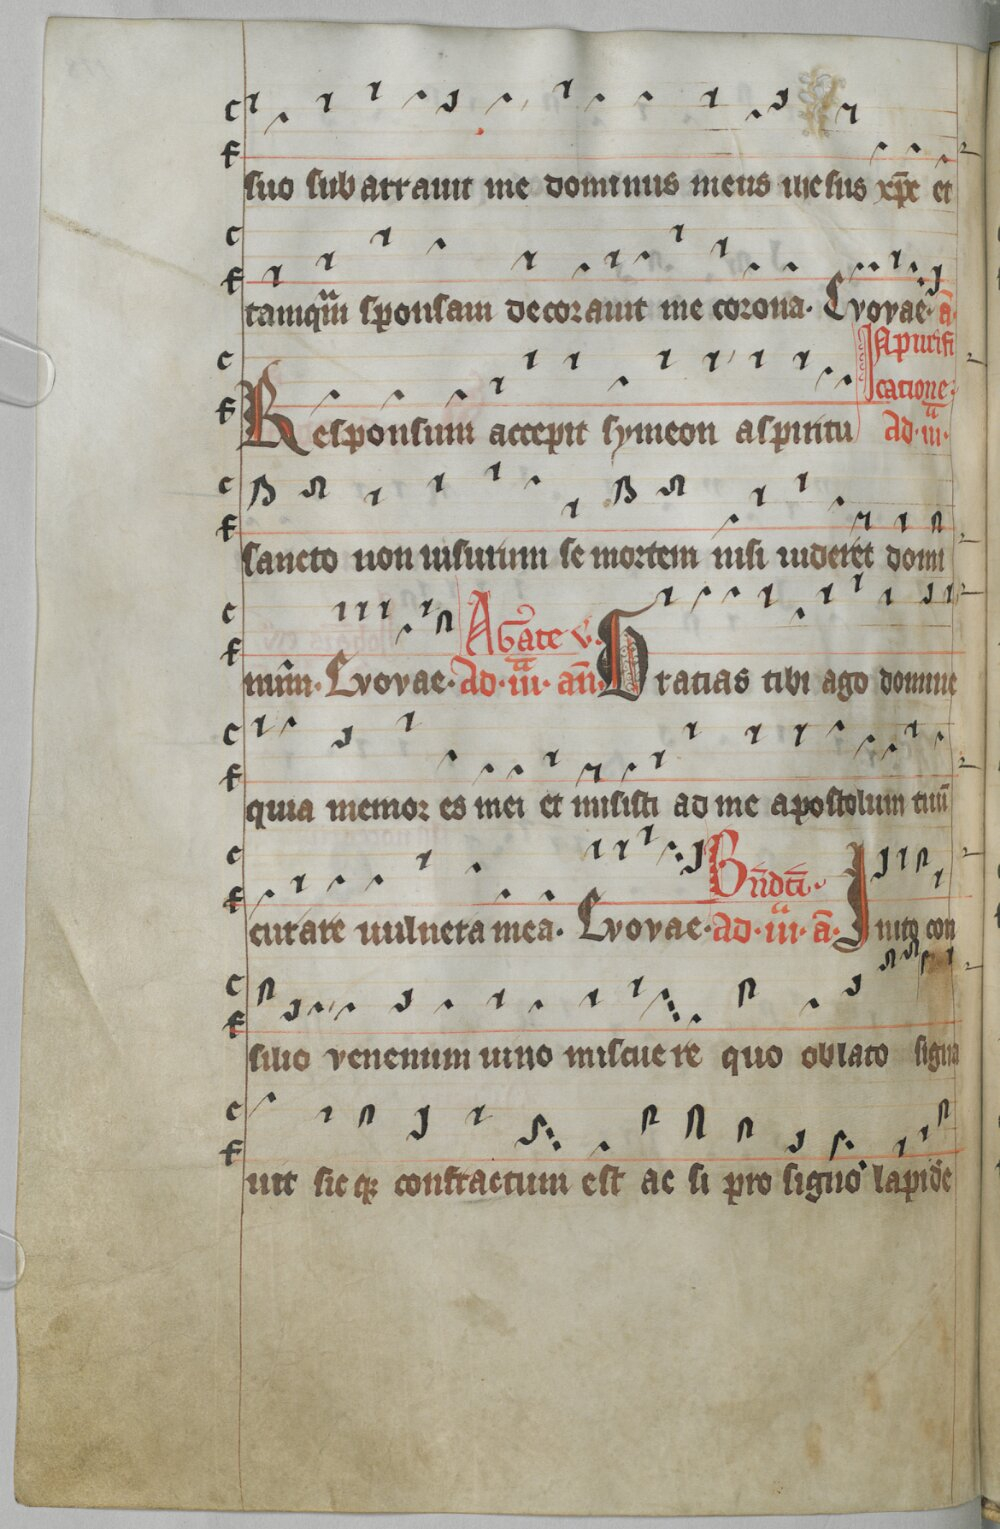 suo subarrauit me dominus meus iħesus xp̄c et
tamqu̅m sponsam decorauit me corona. Evovae. a̅
In purifi
catione.
Responsum accepit symeon a spiritu Ad .iii.ᵃ
sancto non uisurum se mortem nisi uideret domi
num. Evovae. Agathe v. Ad .iii.ᵃ an̅. Gratias tibi ago domine
quia memor es mei et misisti ad me apostolum tuu̅
curare uulnera mea. Evovae. Bn̅dc̅i. ad .iii.ᵃ a̅. Inito con
silio venenum uino miscuere quo oblato signa
uit sicq; confractum est ac si pro signo lapide